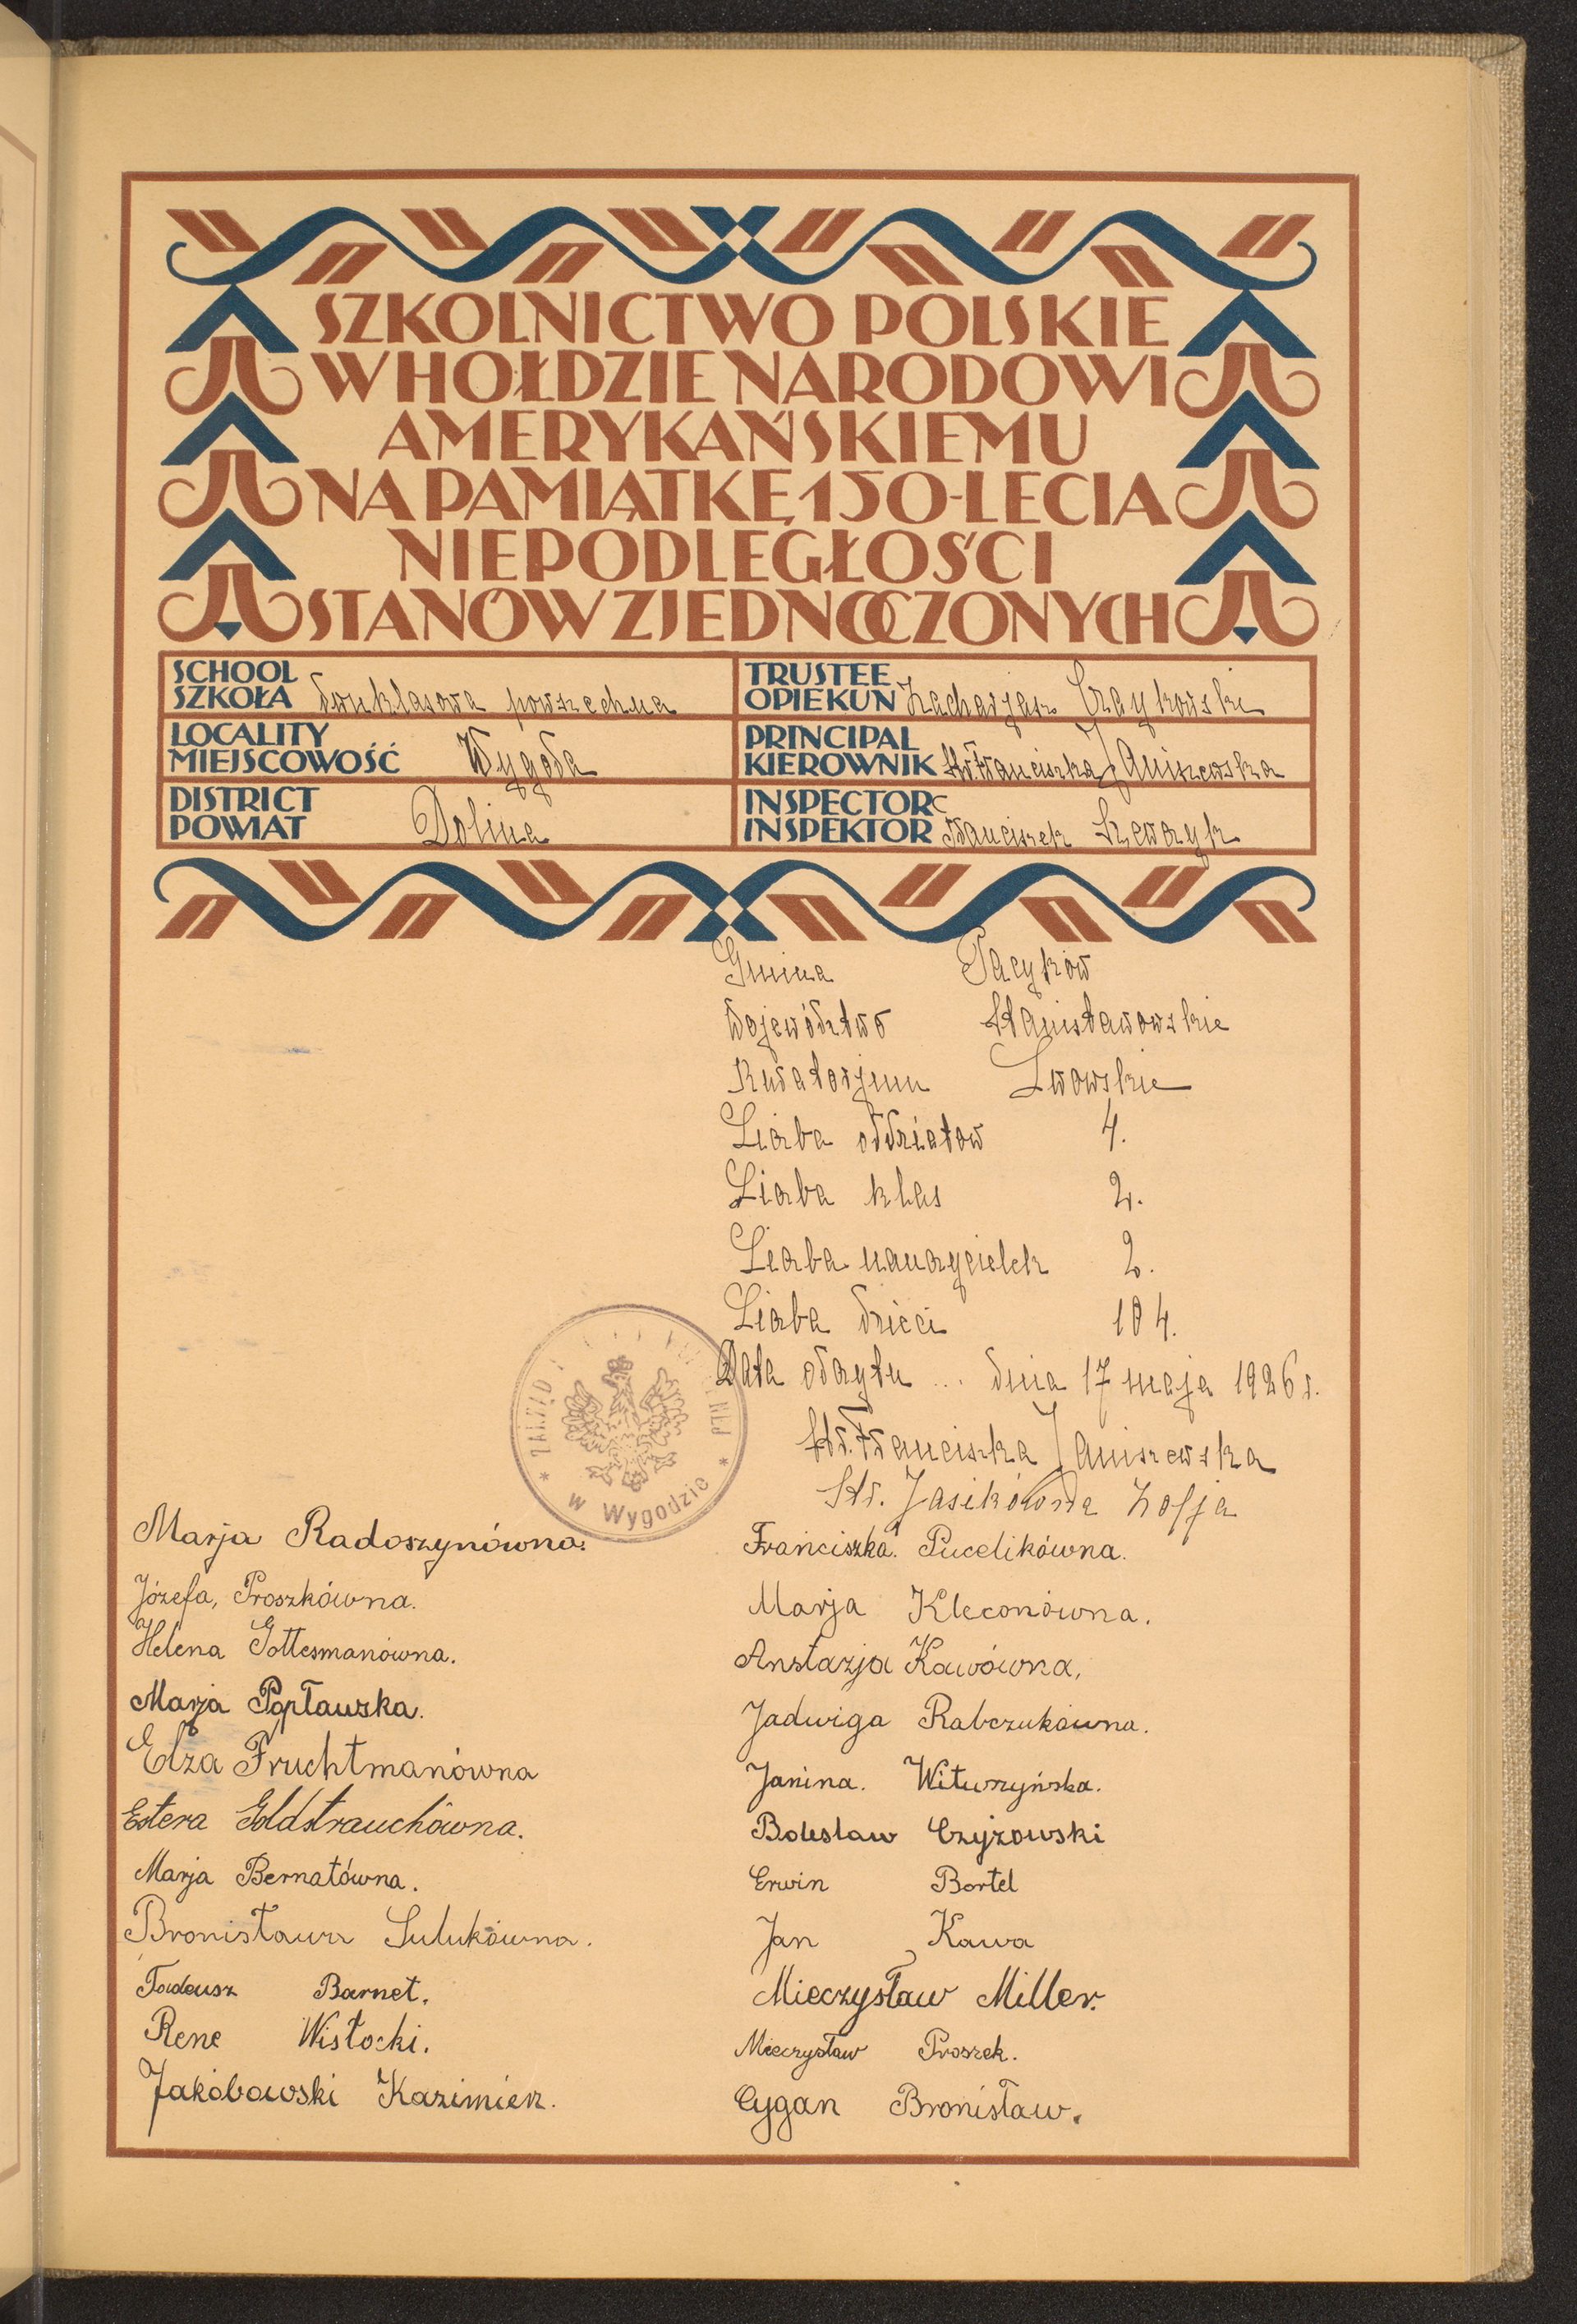 SZKOLNICTWO POLSKIE
W HOŁDZIE NARODOWI
AMERYKAŃSKIEMU
NA PAMIĄTKĘ 150-LECIA
NIEPODLEGŁOŚCI
STANÓW ZJEDNOCZONYCH
SCHOOL
SZKOŁA dwuklasowa powszechna
TRUSTEE
OPIEKUN Zacharjasz Czaykowski
LOCALITY
MIEJSCOWOŚĆ Wygoda
PRINCIPAL
KIEROWNIK Franciszka Janiszewska
DISTRICT
POWIAT Dolina
INSPECTOR
INSPEKTOR Franciszek Szewczyk
Gmina Pacyków
Województwo Stanisławowskie
Kuratorjum Lwowskie
Liczba oddziałow 4.
Liczba klas 2.
Liczba nauczycielek 2.
Liczba dzieci 104.
Data odczytu ... dnia 17 maja 1926 r.
Franciszka Janiszewska
Jasikówna Zofja
ZARZĄD
* w Wygodzie *
Marja Radoszynówna.
Józefa, Proszkówna.
Helena Gottesmanówna.
Marja Popławska.
Elza Fruchtmanówna
Estera Goldstrauchówna.
Marja Bernatówna.
Bronisława Sulukówna.
Tadeusz Barnet.
Rene Wisłocki.
Jakóbowski Kazimierz.
Franciszka. Pucelikówna.
Marja Kleconówna.
Anstazja Kawówna,
Jadwiga Rabczukówna.
Janina. Wituszyńska.
Boleslaw Czyżowski
Erwin Bortel
Jan Kawa
Mieczysław Miller.
Mieczysław Proszek.
Cygan Bronisław.